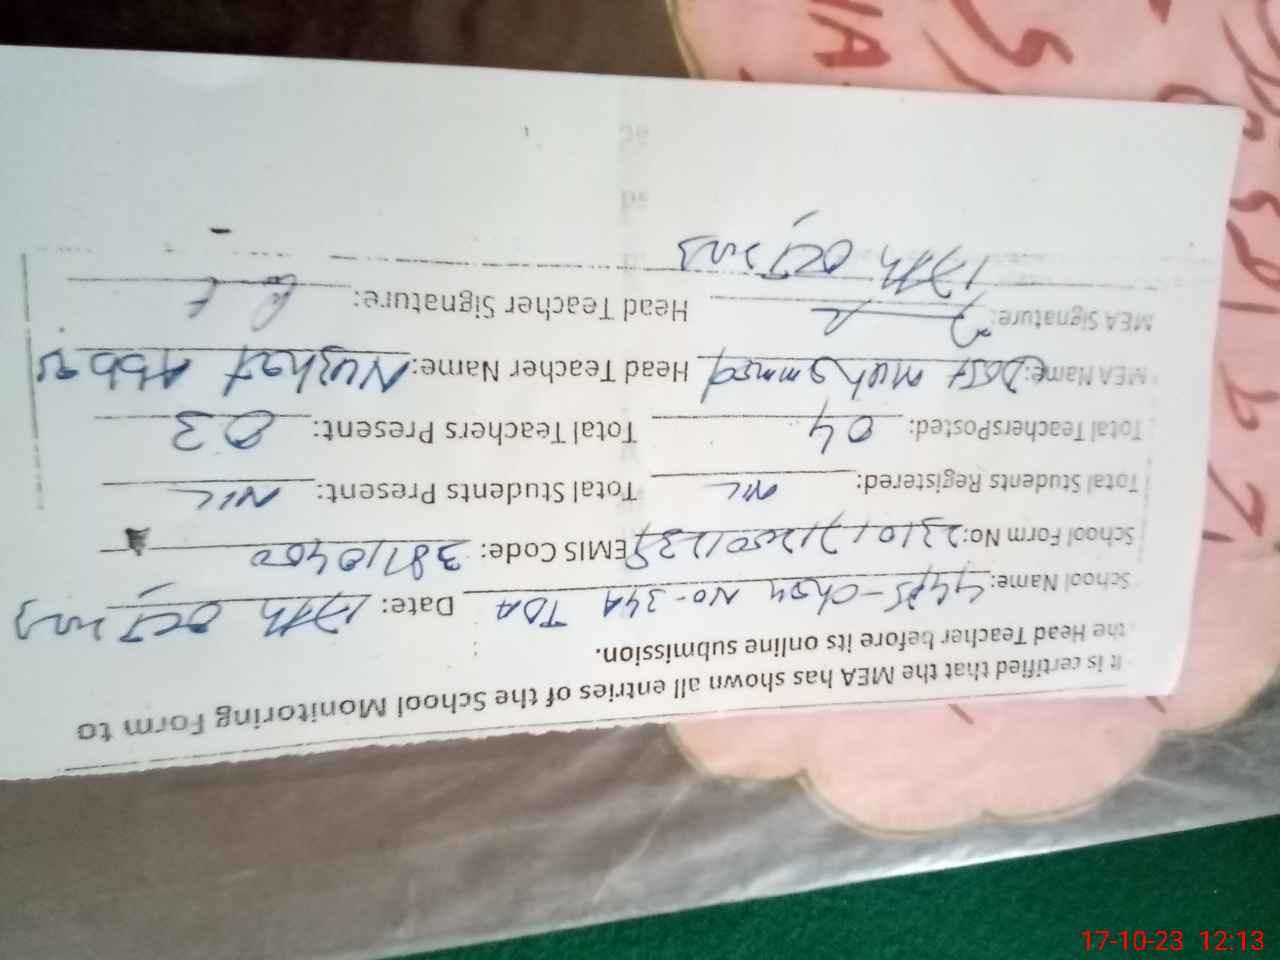 It is certified that the MEA has shown all entries of the School Monitoring Form to
the Head Teacher before its online submission.
School Name: GGPS-Chak No-34A TDA Date: 17th OCT
School Form No: EMIS Code: 38710400
Total Students Registered: NIL Total Students Present: NIL
Total TeachersPosted: 04 Total Teachers Present: 03
MEA Name: Dost Muhammad Head Teacher Name: Nuzhat Abbas
MEA Signature: Head Teacher Signature:
17th OCT
17-10-23 12:13